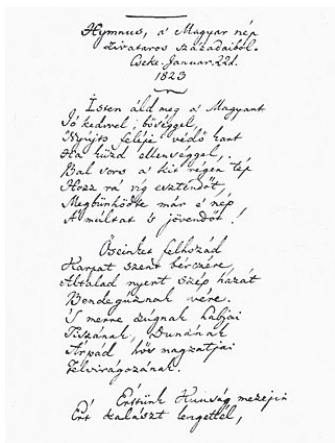 Hymnus, a' Magyar nép
zivataros századaiból.
Cseke. Januar. 22d.
1823
Isten áld meg a' Magyart
Jó kedvvel, bőséggel,
Nyújts feléje védő kart
Ha küzd ellenséggel,
Bal sors a' kit régen tép
Hozz rá víg esztendőt,
Megbűnhődte már e' nép
A' múltat 's jövendőt!
Őseinket felhozád
Kárpát szent bérczére,
Általad nyert szép hazát
Bendegúznak vére.
'S merre zúgnak habjai
Tiszának, Dunának
Árpád hős magzatjai
Felvirágozának.
Értünk Kúnság mezején
Ért kalászt lengettél,